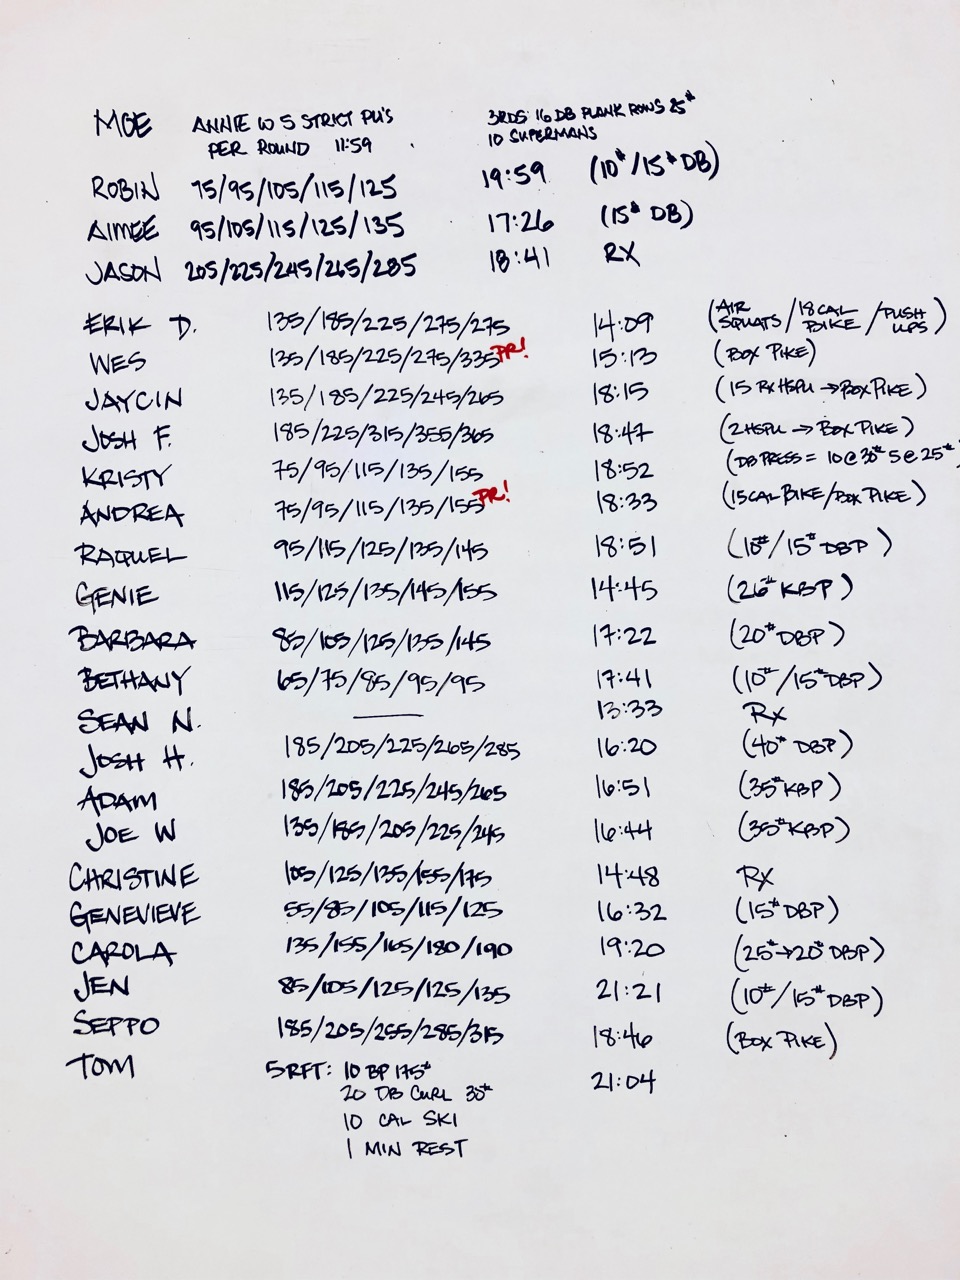 MOE ANNIE W 5 STRICT PU'S 3RDS: 16 DB PLANK ROWS 25#
PER ROUND 11:59 10 SUPERMANS
ROBIN 75/95/105/115/125 19:59 (10#/15# DB)
AIMEE 95/105/115/125/135 17:26 (15# DB)
JASON 205/225/245/265/285 18:41 RX
ERIK D. 135/185/225/275/275 14:09 (AIR SQUATS/18 CAL BIKE/PUSH UPS)
WES 135/185/225/275/335 PR! 15:13 (BOX PIKE)
JAYCIN 135/185/225/245/265 18:15 (15 RX HSPU → BOX PIKE)
JOSH F. 185/225/315/355/365 18:47 (2 HSPU → BOX PIKE)
KRISTY 75/95/115/135/155 18:52 (DB PRESS = 10@30# 5@25#)
ANDREA 75/95/115/135/155 PR! 18:33 (15 CAL BIKE/BOX PIKE)
RAQUEL 95/115/125/135/145 18:51 (10#/15# DBP)
GENIE 115/125/135/145/155 14:45 (26# KBP)
BARBARA 85/105/125/135/145 17:22 (20# DBP)
BETHANY 65/75/85/95/95 17:41 (10#/15# DBP)
SEAN N. — 13:33 Rx
JOSH H. 185/205/225/265/285 16:20 (40# DBP)
ADAM 185/205/225/245/265 16:51 (35# KBP)
JOE W 135/185/205/225/245 16:44 (35# KBP)
CHRISTINE 105/125/135/155/175 14:48 Rx
GENEVIEVE 55/85/105/115/125 16:32 (15# DBP)
CAROLA 135/155/165/180/190 19:20 (25#→20# DBP)
JEN 85/105/125/125/135 21:21 (10#/15# DBP)
SEPPO 185/205/255/285/315 18:46 (BOX PIKE)
TOM 5 RFT: 10 BP 175# 21:04
20 DB CURL 30#
10 CAL SKI
1 MIN REST